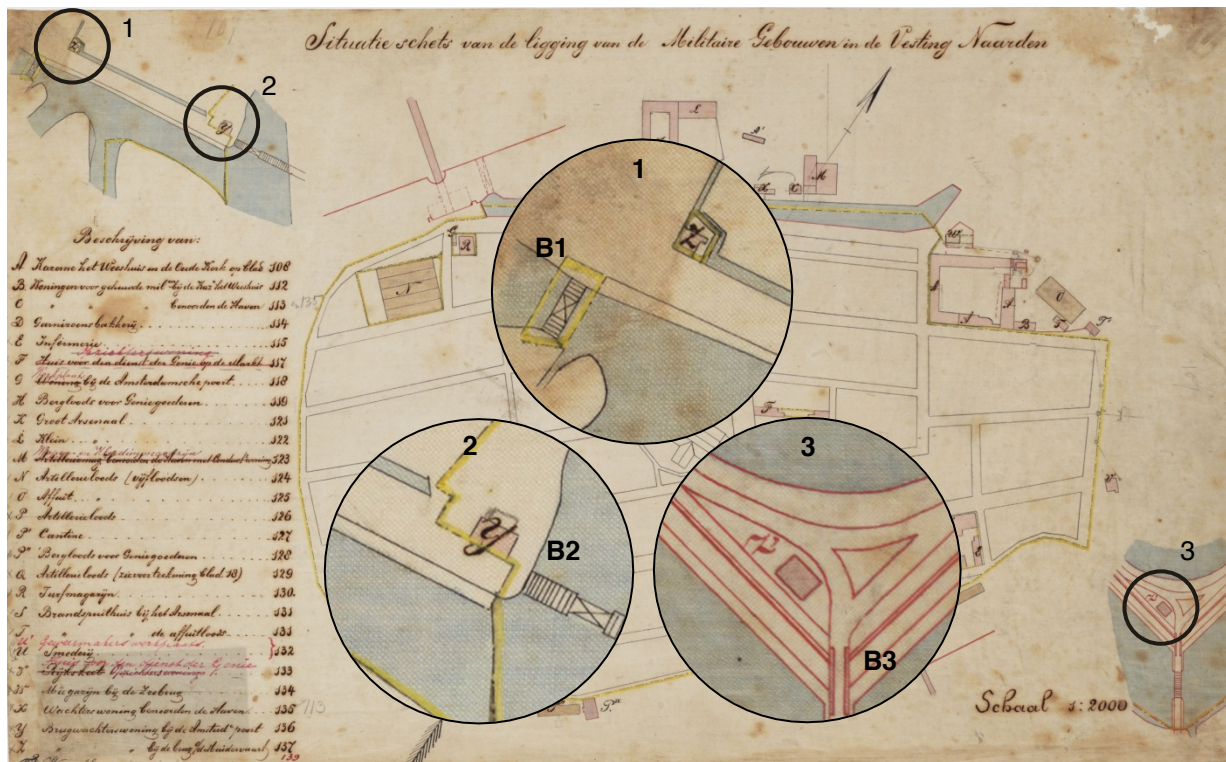 1
2
Situatie schets van de ligging van de Militaire Gebouwen in de Vesting Naarden
1
B1
Z
2
Y
B2
3
B3
3
L
M
N
R
O
F
A
B
Beschrijving van:
A Kazerne het Weeshuis en de Oude Kerk op Blad 108
B Woningen voor gehuwde mil. bij de Kaz. het Weeshuis 112
C " " benoorden de Haven 113
D Garnizoens bakkerij 114
E Infirmerie 115
F Huis voor den dienst der Genie op de Markt 117
G Woning bij de Amsterdamsche poort 118
H Bergloods voor Geniegoederen 119
K Groot Arsenaal 121
L Klein " 122
M benoorden de Haven met 123
N Artillerieloods (vijfloodsen) 124
O Affuit " 125
P Artillerieloods 126
P' Cantine 127
P" Bergloods voor Geniegoederen 128
Q Artillerieloods (zie voor teekening blad 18) 129
R Turfmagazijn 130
S Brandspuithuis bij het Arsenaal 131
T " " de affuitloods 131
Geweermakers werkplaats
U Smederij 132
Huis voor den dienst der Genie
V 133
W Magazijn bij de Zeebrug 134
X Wachterswoning benoorden de Haven 135
Y Brugwachterswoning bij de Amsterd. poort 136
Z " bij de brug 137
139
Schaal 1:2000